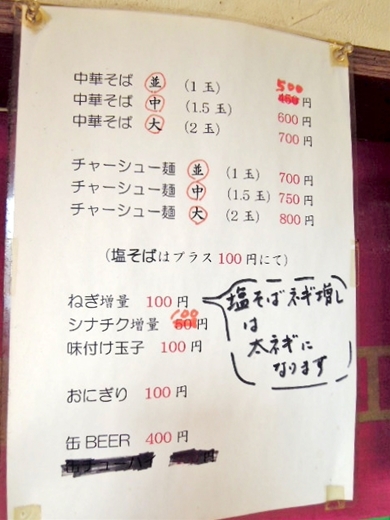 中華そば 並 (1 玉) 500円
中華そば 中 (1.5 玉) 600円
中華そば 大 (2 玉) 700円
チャーシュー麺 並 (1 玉) 700円
チャーシュー麺 中 (1.5 玉) 750円
チャーシュー麺 大 (2 玉) 800円
(塩そばはプラス 100 円にて)
ねぎ増量 100 円
シナチク増量 100円
味付け玉子 100 円
塩そばネギ増し
は
太ネギに
なります
おにぎり 100 円
缶 BEER 400 円